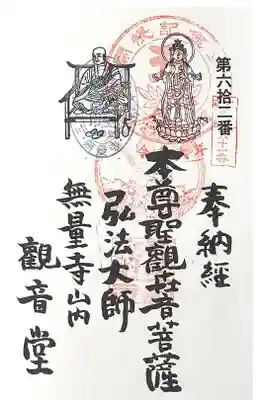 第六拾二番
奉納経
本尊聖觀世音菩薩
弘法大師
無量寺山内
觀音堂